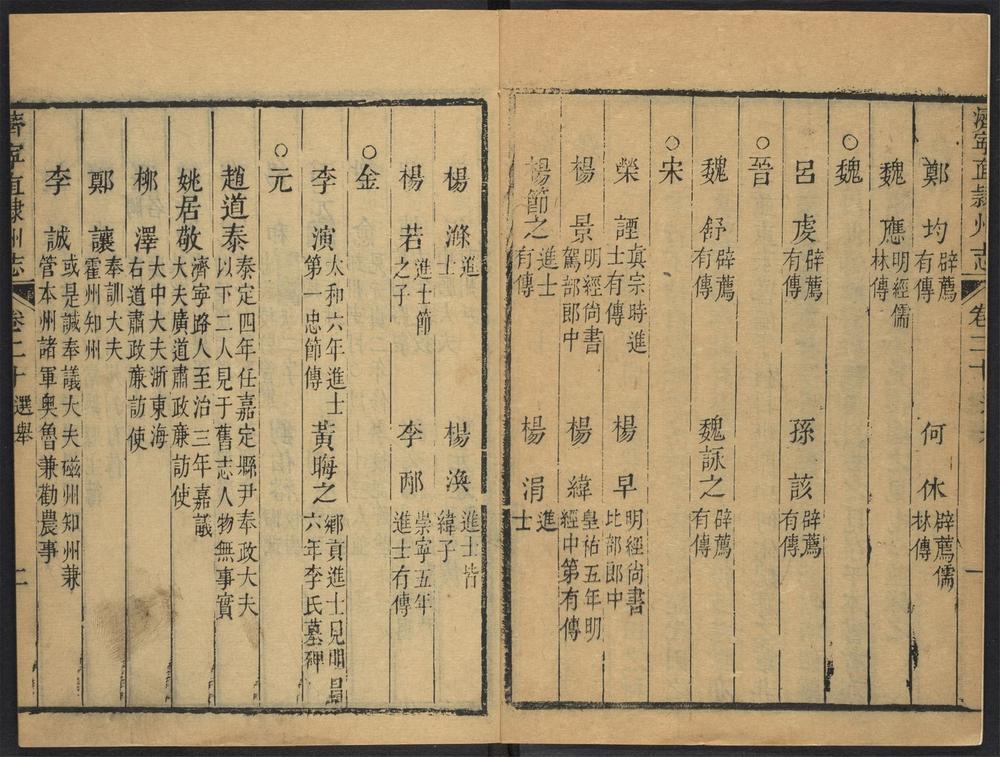 濟寧直隸州志 卷二十 一
鄭均 辟薦有傳 何休 辟薦儒林傳
魏應 明經儒林傳
○魏
呂虔 辟薦有傳 孫該 辟薦有傳
○晉
魏舒 辟薦有傳 魏詠之 辟薦有傳
○宋
榮諲 真宗時進士有傳 楊早 明經尚書比部郎中
楊景 明經尚書駕部郎中 楊緯 皇祐五年明經中第有傳
楊節之 進士有傳 楊涓 進士
楊滌 進士 楊渙 進士皆緯子
楊若 進士節之子 李邴 崇寧五年進士有傳
○金
李演 太和六年進士第一忠節傳 黃晦之 鄉貢進士見明昌六年李氏墓碑
○元
趙道泰 泰定四年任嘉定縣尹奉政大夫以下二人見于舊志人物無事實
姚居敬 濟寧路人至治三年嘉議大夫廣道肅政亷訪使
柳澤 大中大夫浙東海右道肅政亷訪使
鄭讓 奉訓大夫霍州知州
李誠 或是諴奉議大夫磁州知州兼管本州諸軍奥魯兼勸農事
濟寧直隸州志 卷二十 選舉 二